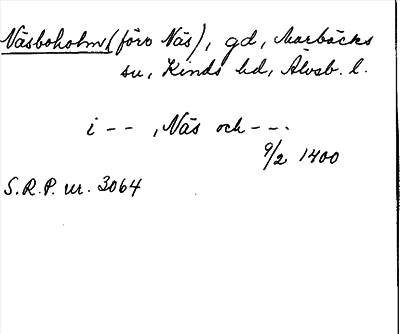 Näsboholm (förv Näs), gd, Marbäcks
sn, Kinds hd, Älvsb. l.
i - - , Näs och - - .
9/2 1400
S.R.P. nr. 3064